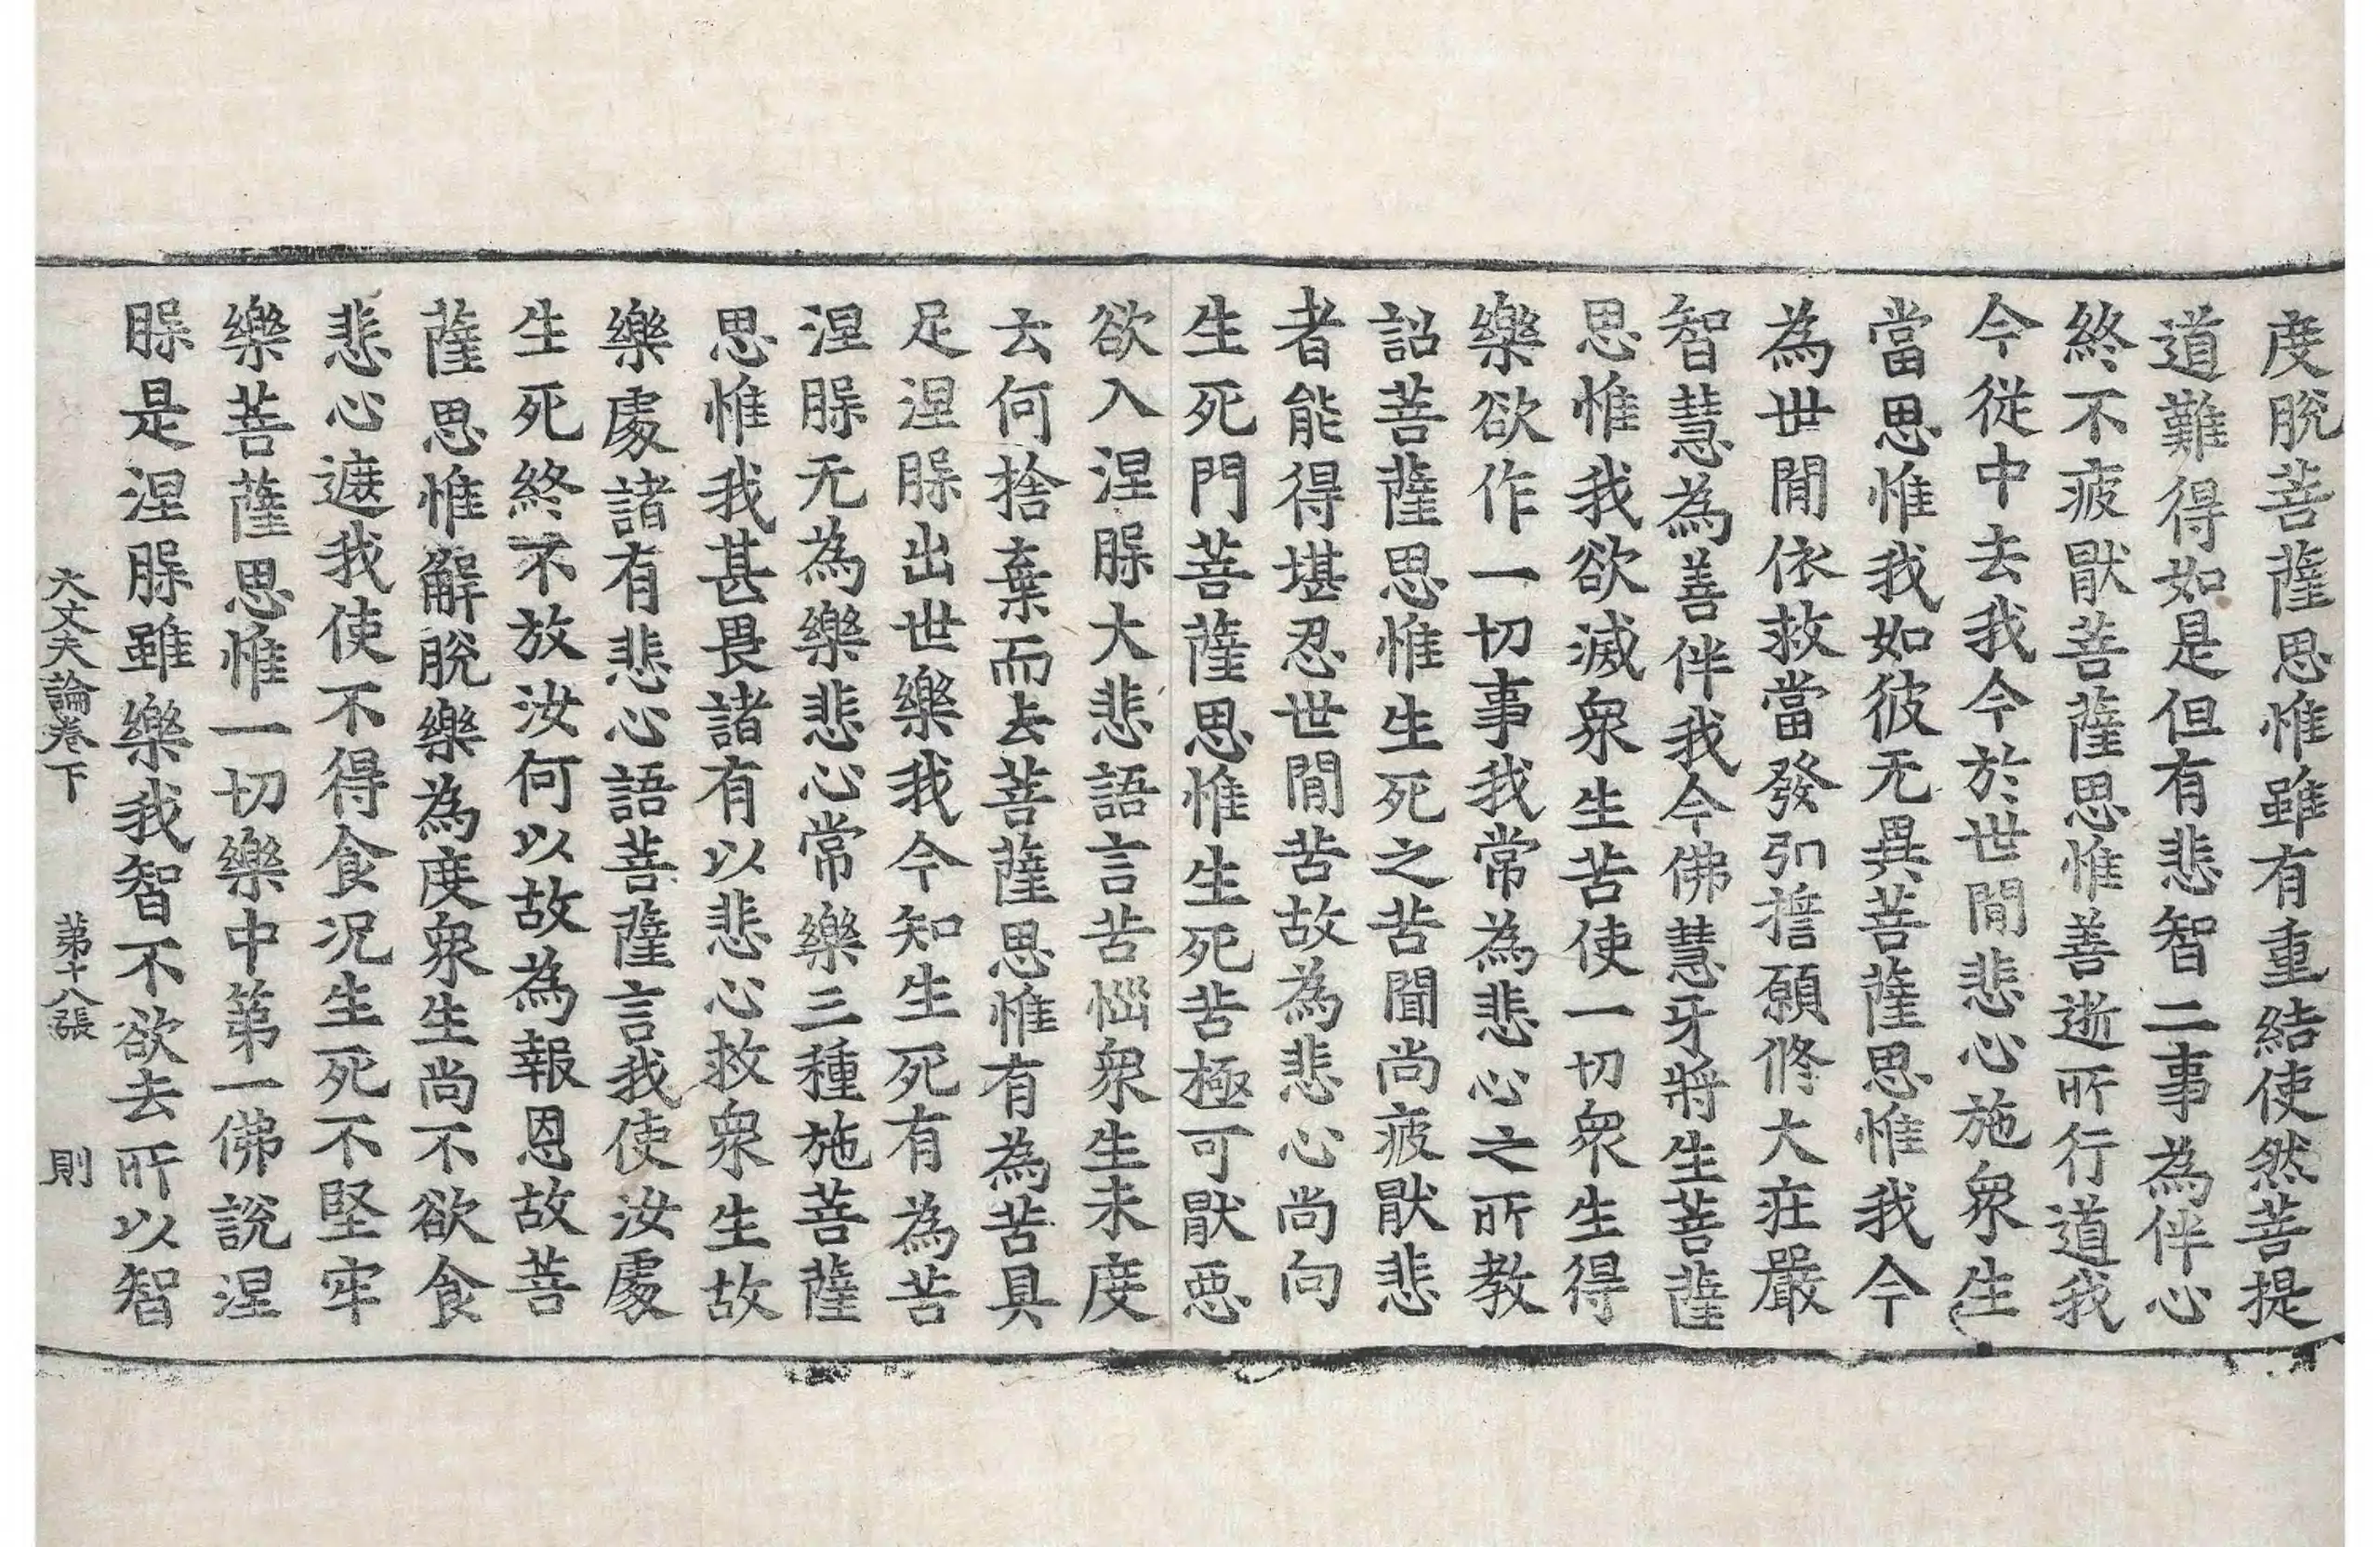 度脫菩薩思惟雖有重結使然菩提
道難得如是但有悲智二事為伴心
終不疲猒菩薩思惟善逝所行道我
今從中去我今於世間悲心施衆生
當思惟我如彼无異菩薩思惟我今
為世間依救當發弘誓願修大莊嚴
智慧為善伴我今佛慧牙將生菩薩
思惟我欲滅衆生苦使一切衆生得
樂欲作一切事我常為悲心之所教
詔菩薩思惟生死之苦聞尚疲猒悲
者能得堪忍世間苦故為悲心尚向
生死門菩薩思惟生死苦極可猒惡
欲入涅槃大悲語言苦惱衆生未度
云何捨棄而去菩薩思惟有為苦具
足涅槃出世樂我今知生死有為苦
涅槃无為樂悲心常樂三種施菩薩
思惟我甚畏諸有以悲心救衆生故
樂處諸有悲心語菩薩言我使汝處
生死終不放汝何以故為報恩故菩
薩思惟解脫樂為度衆生尚不欲食
悲心遮我使不得食況生死不堅牢
樂菩薩思惟一切樂中第一佛說涅
槃是涅槃雖樂我智不欲去所以智
大丈夫論卷下 第十八張 則